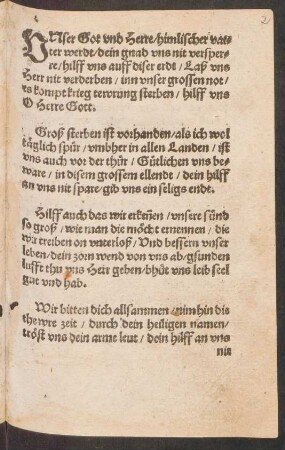 2
VNser Got vnd Herre/himlischer vat-
ter werde/dein gnad vns nit versper-
re/hilff vns auff diser erdt/Laß vns
Herr nit verderben/inn vnser grossen not/
es kompt krieg tewrung sterben/hilff vns
O Herre Gott.
Groß sterben ist vorhanden/als ich wol
täglich spür/vmbher in allen Landen/ist
vns auch vor der thür/Gütlichen vns be-
ware/in disem grossem ellende/dein hilff
an vns nit spare/gib vns ein seligs ende.
Hilff auch das wir erkeñen/vnsere sünd
so groß/wie man die möcht ernennen/die
wir treiben on vnterloß/Vnd bessern vnser
leben/dein zörn wend von vns ab/gsunden
lufft thu vns Herr geben/bhüt vns leib seel
gut vnd hab.
Wir bitten dich allsammen/nim hin die
thewre zeit/durch dein heiligen namen/
tröst vns dein arme leut/dein hilff an vns
nit